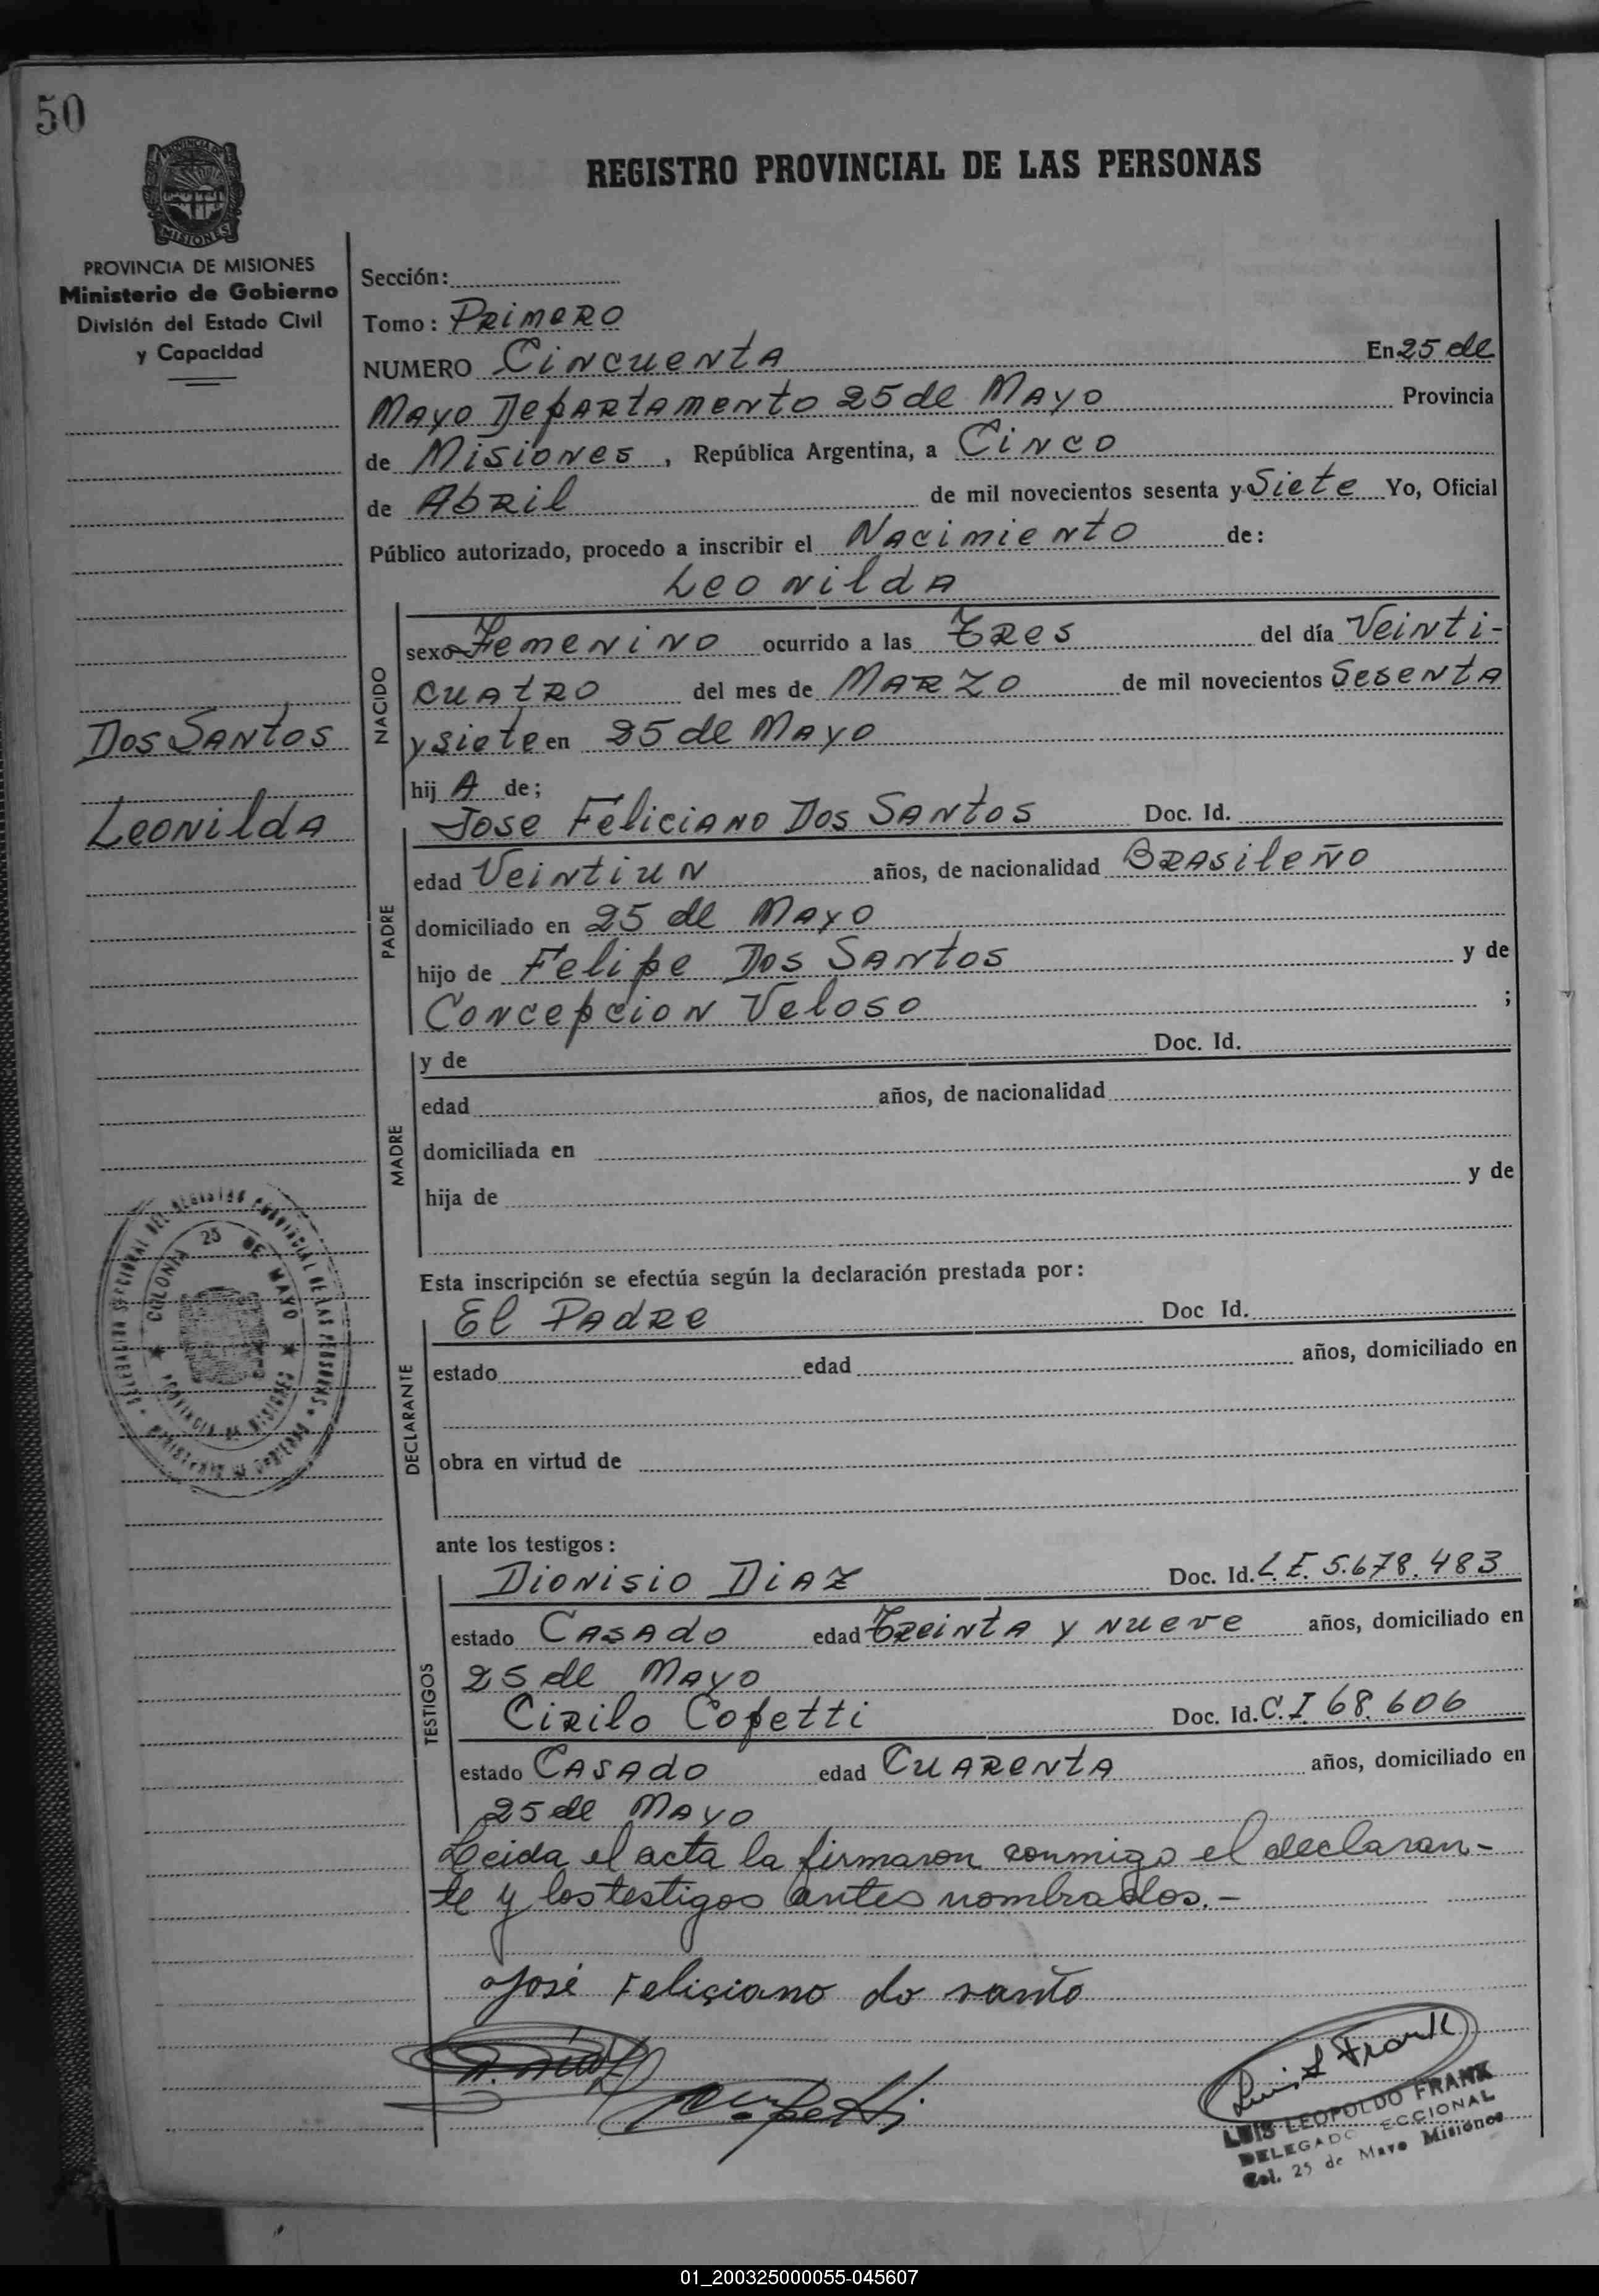 50
PROVINCIA DE
MISIONES
REGISTRO PROVINCIAL DE LAS PERSONAS
PROVINCIA DE MISIONES
Ministerio de Gobierno
División del Estado Civil
y Capacidad
Sección:
Tomo: Primero
NUMERO Cincuenta En 25 de
Mayo Departamento 25 de Mayo Provincia
de Misiones, República Argentina, a Cinco
de Abril de mil novecientos sesenta y Siete Yo, Oficial
Público autorizado, procedo a inscribir el Nacimiento de:
Leonilda
NACIDO
sexo Femenino ocurrido a las Tres del día Veinti-
cuatro del mes de Marzo de mil novecientos Sesenta
y siete en 25 de Mayo
hij A de;
Dos Santos
Leonilda
PADRE
Jose Feliciano Dos Santos Doc. Id.
edad Veintiun años, de nacionalidad Brasileño
domiciliado en 25 de Mayo
hijo de Felipe Dos Santos y de
Concepcion Veloso ;
MADRE
y de Doc. Id.
edad años, de nacionalidad
domiciliada en
hija de y de
Esta inscripción se efectúa según la declaración prestada por:
DECLARANTE
El Padre Doc Id.
estado edad años, domiciliado en
obra en virtud de
DELEGACION SECCIONAL DEL REGISTRO PROVINCIAL DE LAS PERSONAS
MINISTERIO DE GOBIERNO
COLONIA 25 DE MAYO
PROVINCIA DE MISIONES
ante los testigos:
TESTIGOS
Dionisio Diaz Doc. Id. L.E. 5.678.483
estado Casado edad Treinta y nueve años, domiciliado en
25 de Mayo
Cirilo Copetti Doc. Id. C.I 68.606
estado Casado edad Cuarenta años, domiciliado en
25 de Mayo
Leida el acta la firmaron conmigo el declaran-
te y los testigos antes nombrados.-
José Feliciano do santo
Luis L Frank
LUIS LEOPOLDO FRANK
DELEGADO SECCIONAL
Col. 25 de Mayo Misiones
01_200325000055-045607